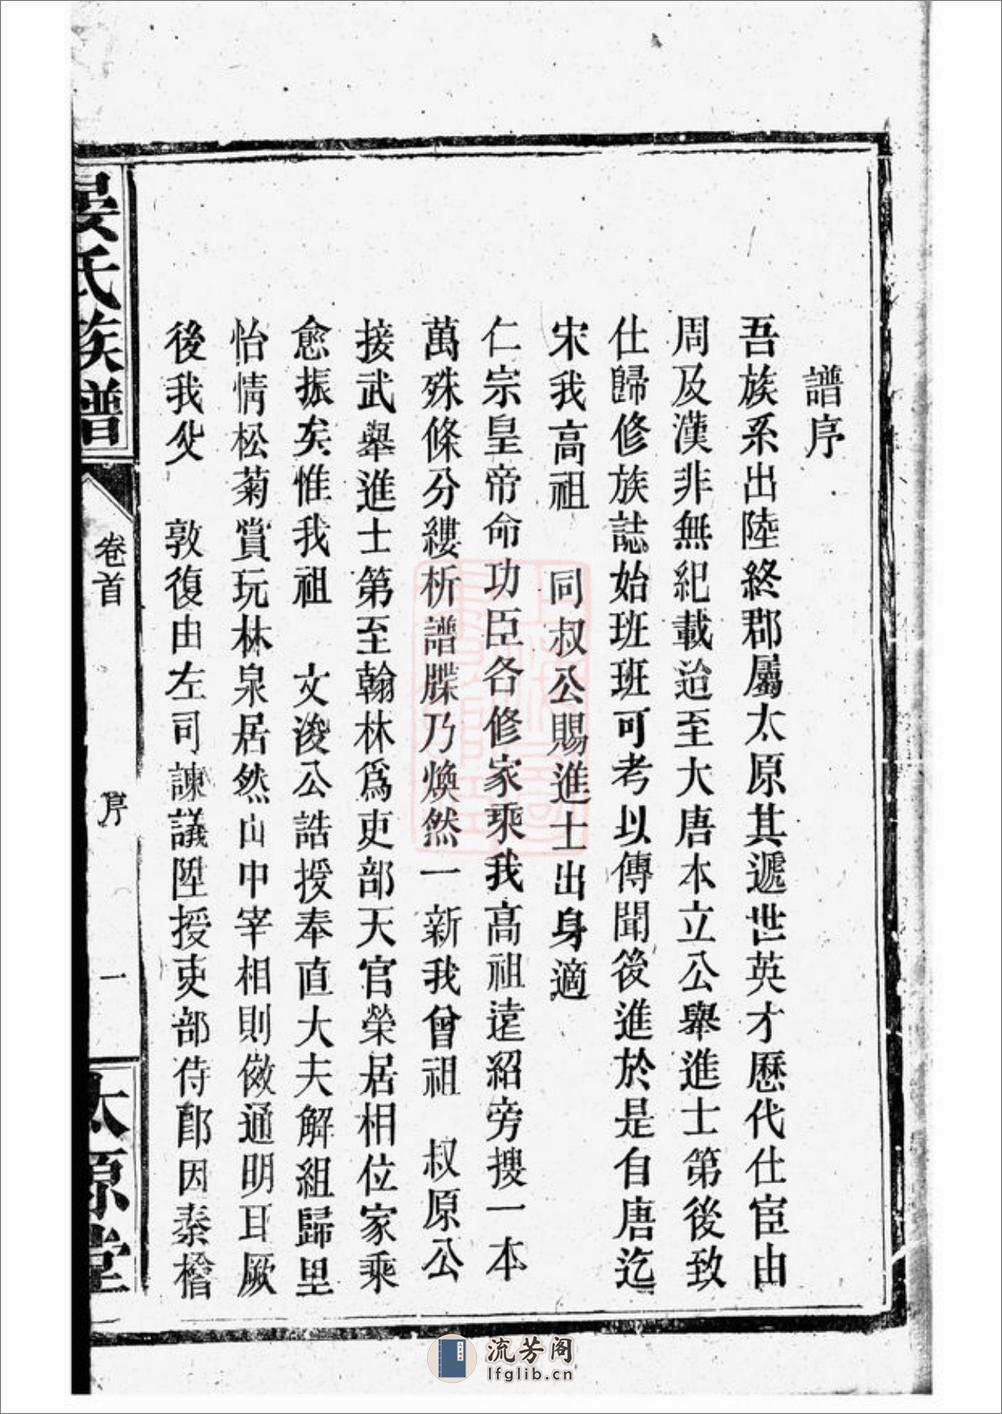 譜序
吾族系出陸終郡屬太原其遞世英才歷代仕宦由
周及漢非無紀載迨至大唐本立公舉進士第後致
仕歸修族誌始班班可考以傳聞後進於是自唐迄
宋我高祖　同叔公賜進士出身適
仁宗皇帝命功臣各修家乘我高祖遠紹旁搜一本
萬殊條分縷析譜牒乃煥然一新我曾祖　叔原公
接武舉進士第至翰林爲吏部天官榮居相位家乘
愈振矣惟我祖　文浚公誥授奉直大夫解組歸里
怡情松菊賞玩林泉居然山中宰相則儆通明耳厥
後我父　敦復由左司諫議陞授吏部侍郎因秦檜
晏氏族譜
卷首
序
一
太原堂
流芳阁
lfglib.cn